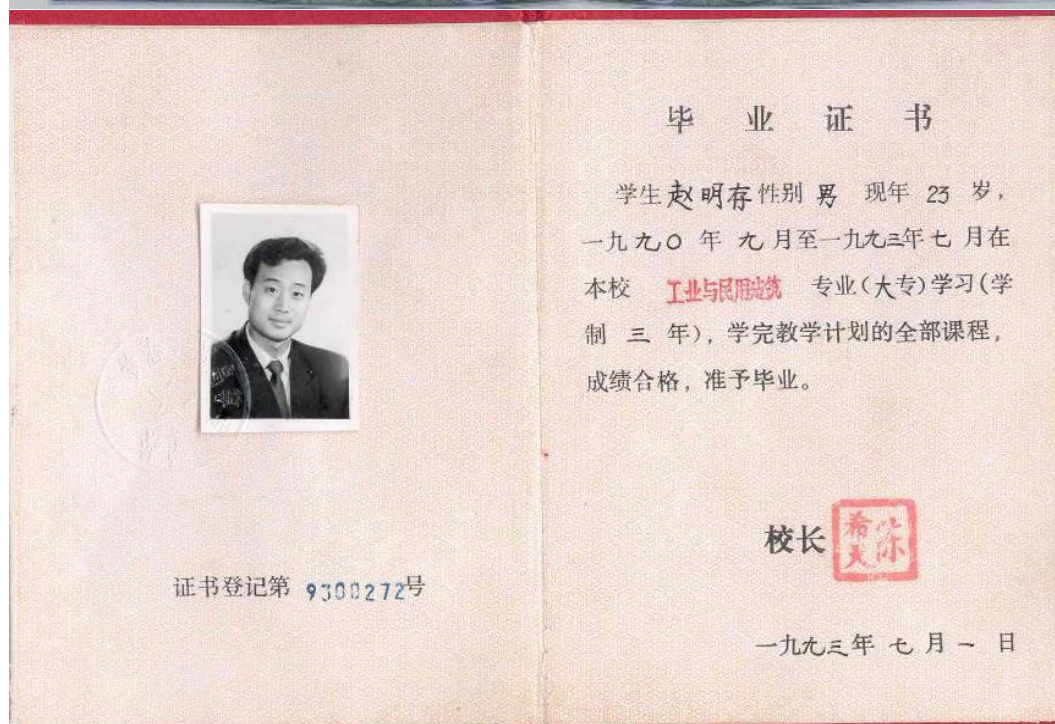 证书登记第 9300272号
毕 业 证 书
学生赵明存性别 男 现年 23 岁，
一九九〇 年 九 月至一九九三年七 月在
本校 工业与民用建筑 专业（大专）学习（学
制 三 年），学完教学计划的全部课程，
成绩合格，准予毕业。
校长
一九九三年 七 月 一 日